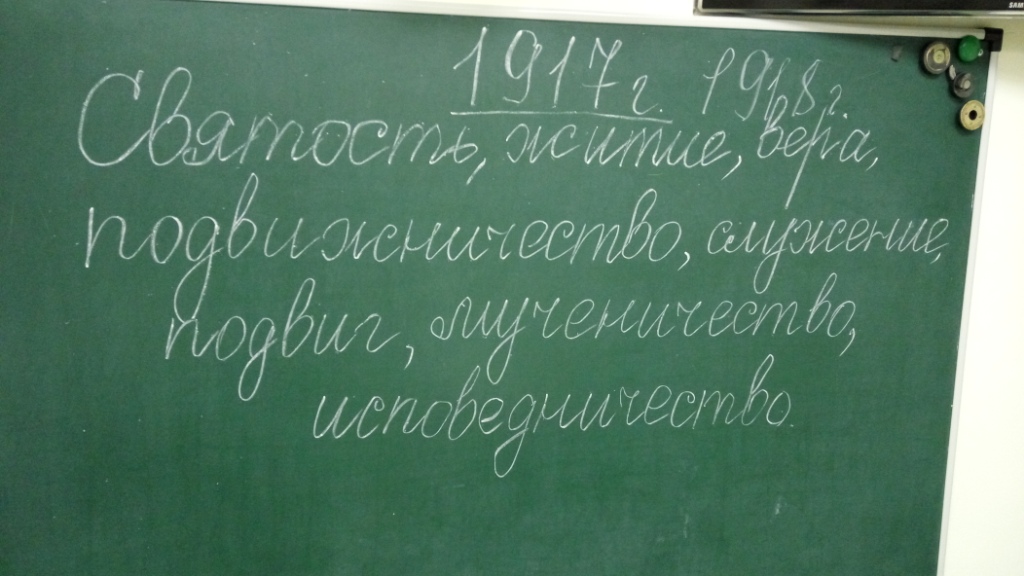 SAM
1917г. 1918г.
Святость, житие, вера,
подвижничество, служение,
подвиг, мученичество,
исповедничество.